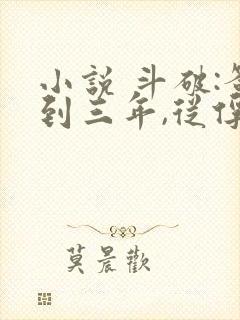 小說 斗破:
到三年,從
莫晨歡